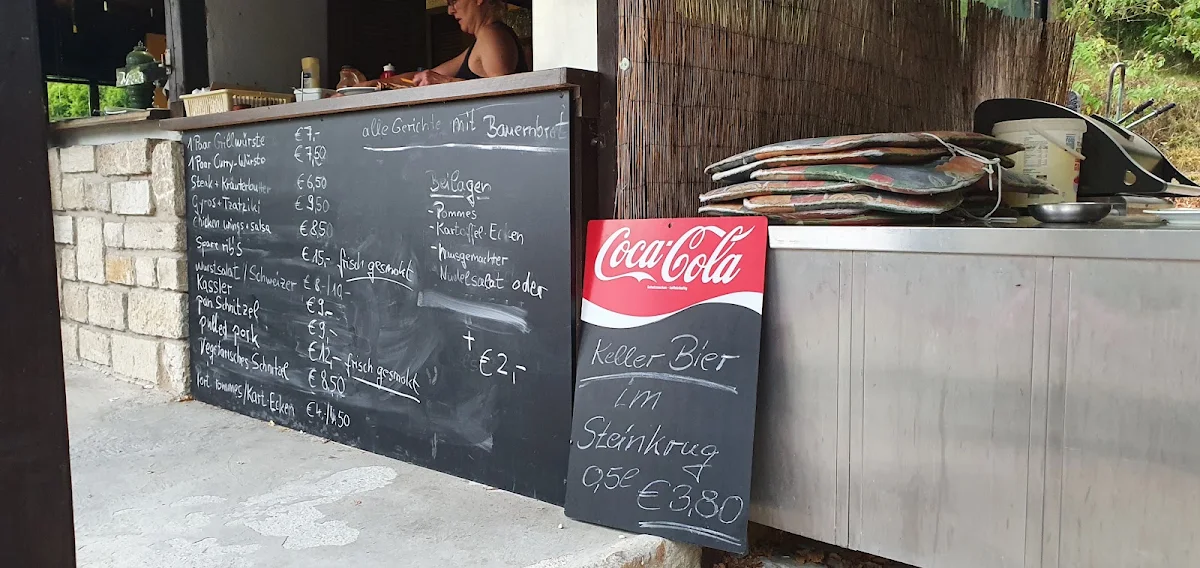 alle Gerichte mit Bauernbrot
1 Paar Grillwürste €7,-
1 Paar Curry-Würste €7,50
Steak + Kräuterbutter €6,50
Gyros + Tzatziki €9,50
Chicken wings + salsa €8,50
Spare ribs €15,- frisch gesmokt
Wurstsalat / Schweizer €8-/10-
Kassler €9,-
pan. Schnitzel €9,-
pulled pork €12,- frisch gesmokt
Vegetarisches Schnitzel €8,50
Port. Pommes/Kart.Ecken €4,-/4,50
Beilagen
-Pommes
-Kartoffel-Ecken
-Hausgemachter
Nudelsalat oder
+ €2,-
Coca-Cola
Keller Bier
im
Steinkrug
0,5l €3,80